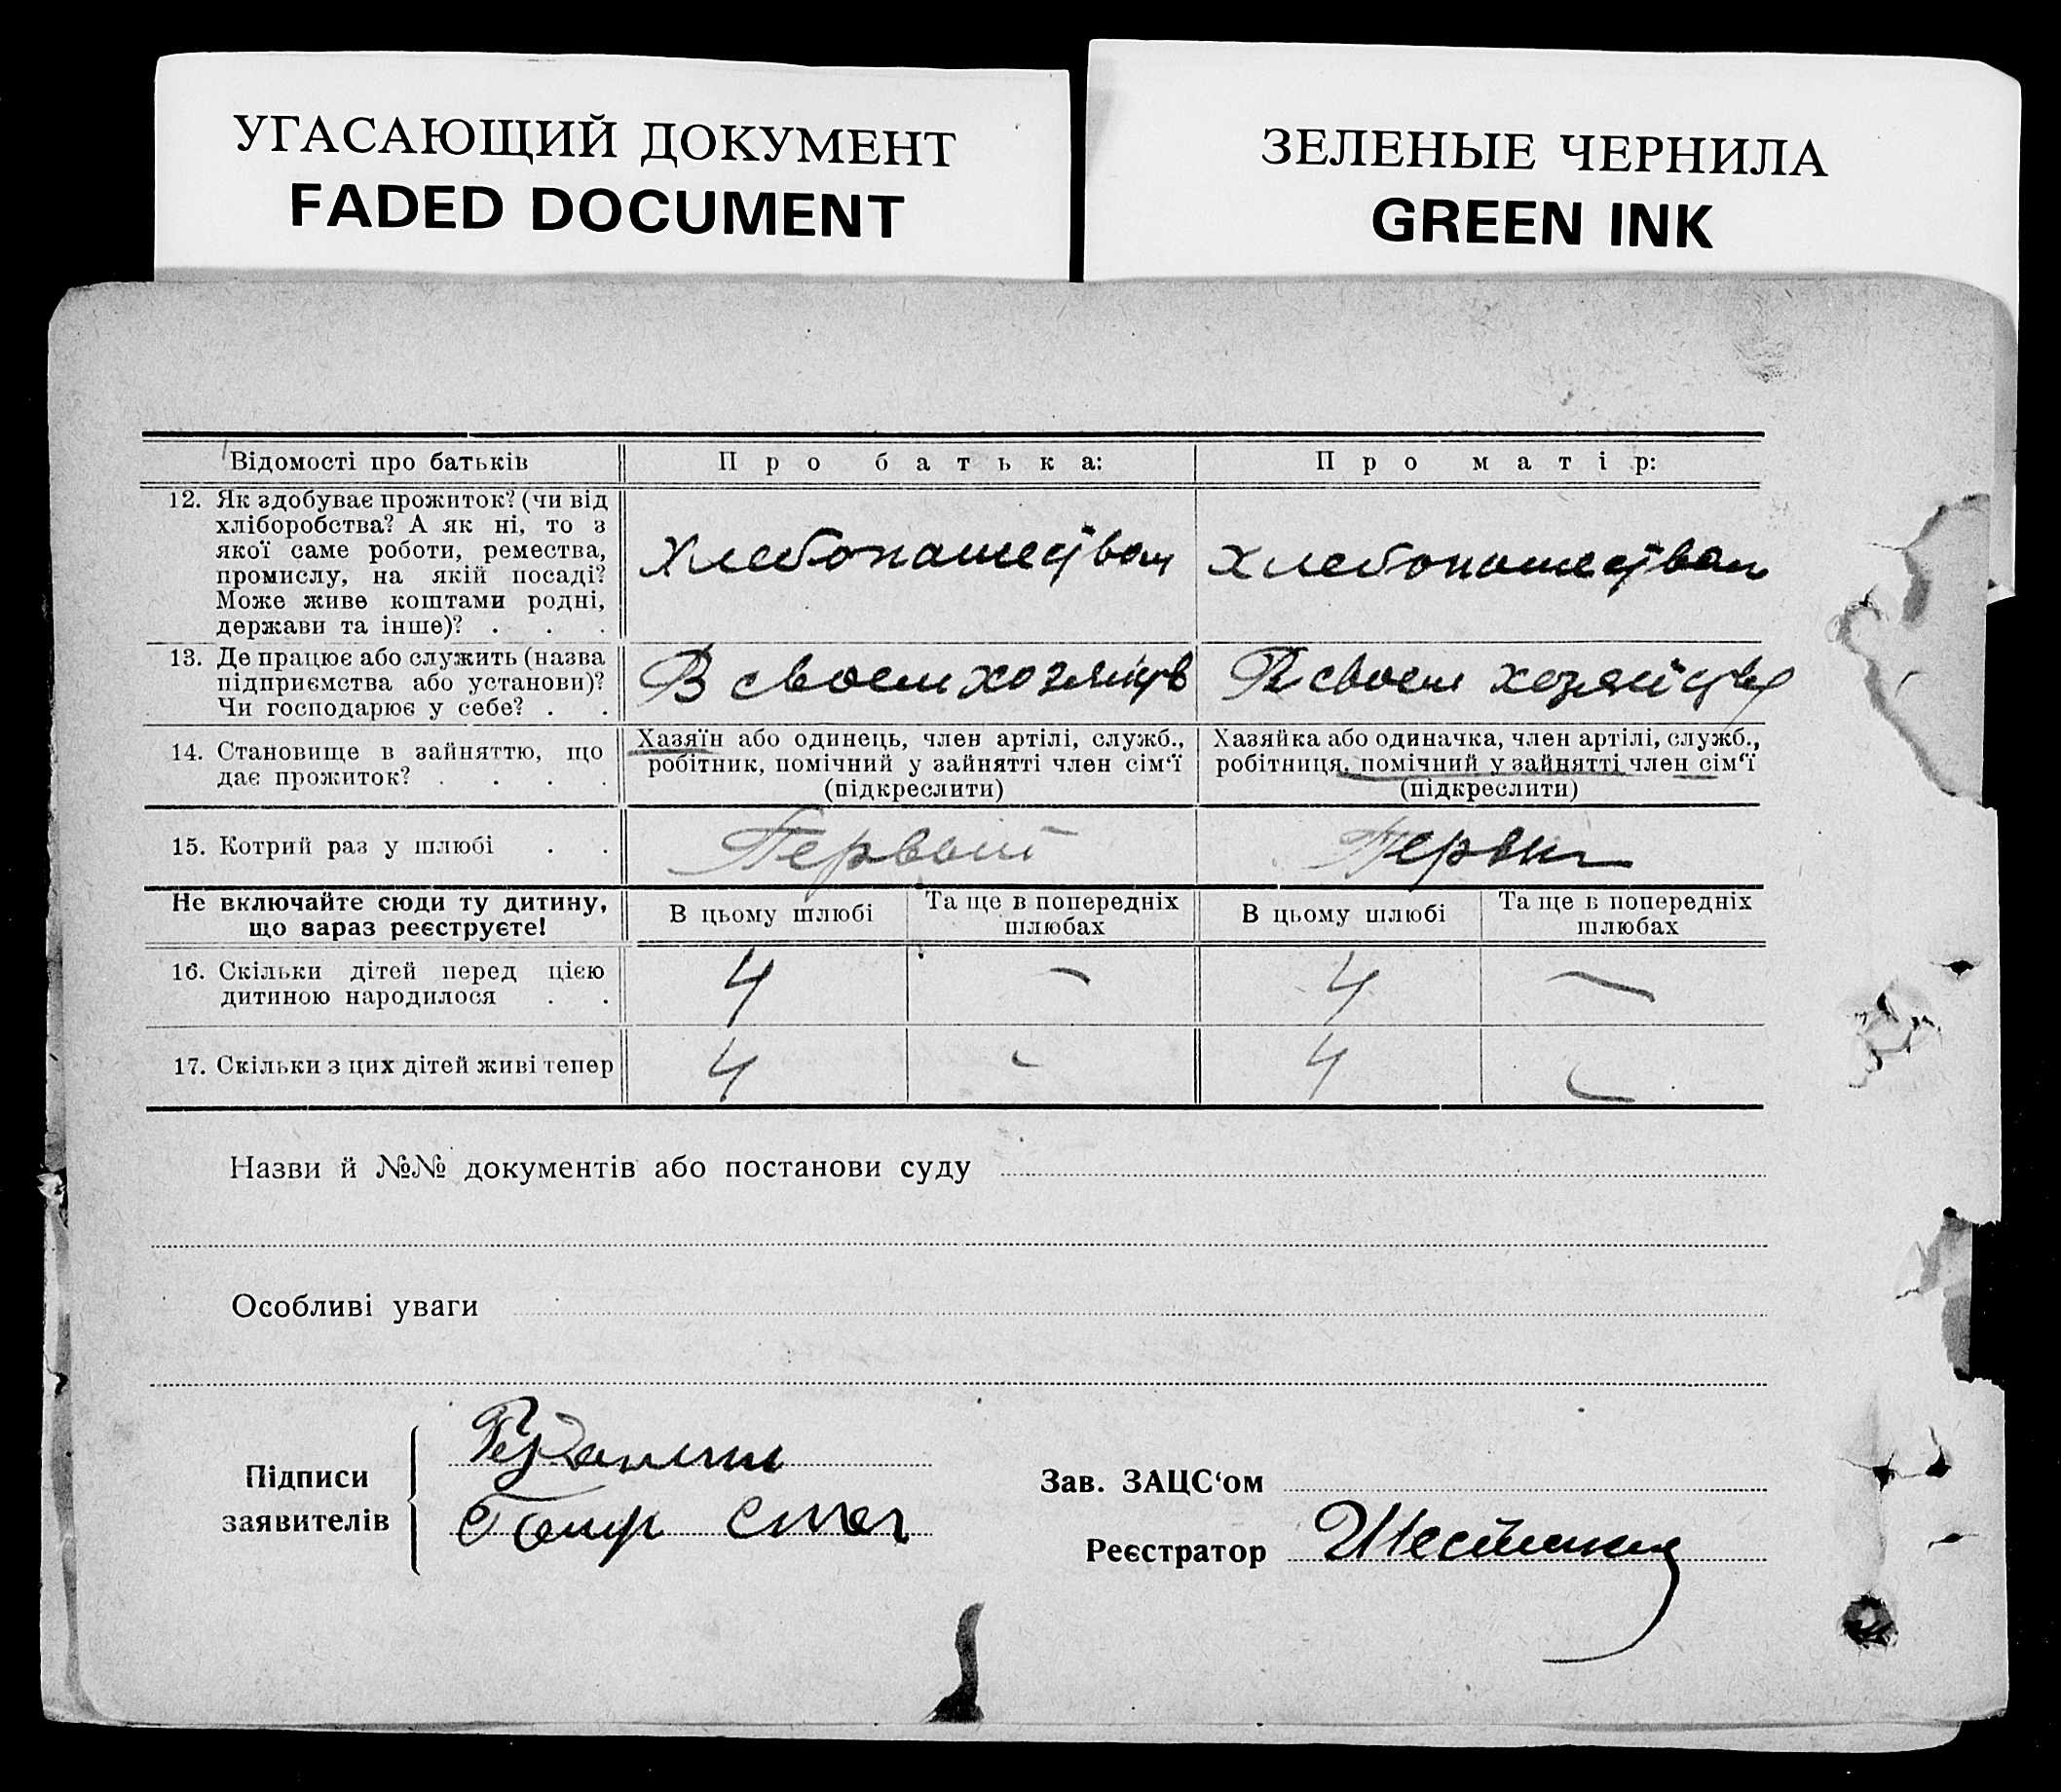 УГАСАЮЩИЙ ДОКУМЕНТ
FADED DOCUMENT
ЗЕЛЕНЫЕ ЧЕРНИЛА
GREEN INK
Відомості про батьків
Про батька:
Про матір:
12. Як здобуває прожиток? (чи від
хліборобства? А як ні, то з
якої саме роботи, ремества,
промислу, на якій посаді?
Може живе коштами родні,
держави та інше)? . . .
Хлебопашеством
Хлебопашеством
13. Де працює або служить (назва
підприємства або установи)?
Чи господарює у себе? . .
В своем хозяйств
В своем хозяйству
14. Становище в зайняттю, що
дає прожиток? . . . .
Хазяїн або одинець, член артілі, служб.,
робітник, помічний у зайнятті член сім'ї
(підкреслити)
Хазяйка або одиначка, член артілі, служб.,
робітниця, помічний у зайнятті член сім'ї
(підкреслити)
15. Котрий раз у шлюбі . .
Первый
Первый
Не включайте сюди ту дитину,
що зараз реєструєте!
В цьому шлюбі
Та ще в попередніх
шлюбах
В цьому шлюбі
Та ще в попередніх
шлюбах
16. Скільки дітей перед цією
дитиною народилося . .
4 — 4 —
17. Скільки з цих дітей живі тепер
4 - 4 -
Назви й №№ документів або постанови суду
Особливі уваги
Підписи
заявителів
Зав. ЗАЦС'ом
Реєстратор